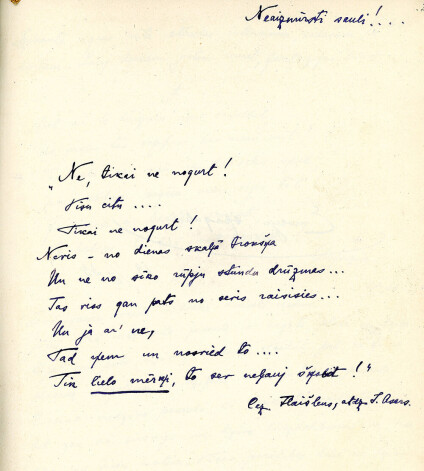 Neaizmirsti sauli!...
"Ne, tikai ne nogurt!
Visu citu ....
Tikai ne nogurt!
no dienas skaļā trokšņa
Un ne no sīko rūpju stundu drūzmas...
Tas viss gan pats no sevis raisīsies...
Un ja ar' ne,
Tad ņem un nosvied to ....
Tik lielo mērķi, to sev neļauj !"